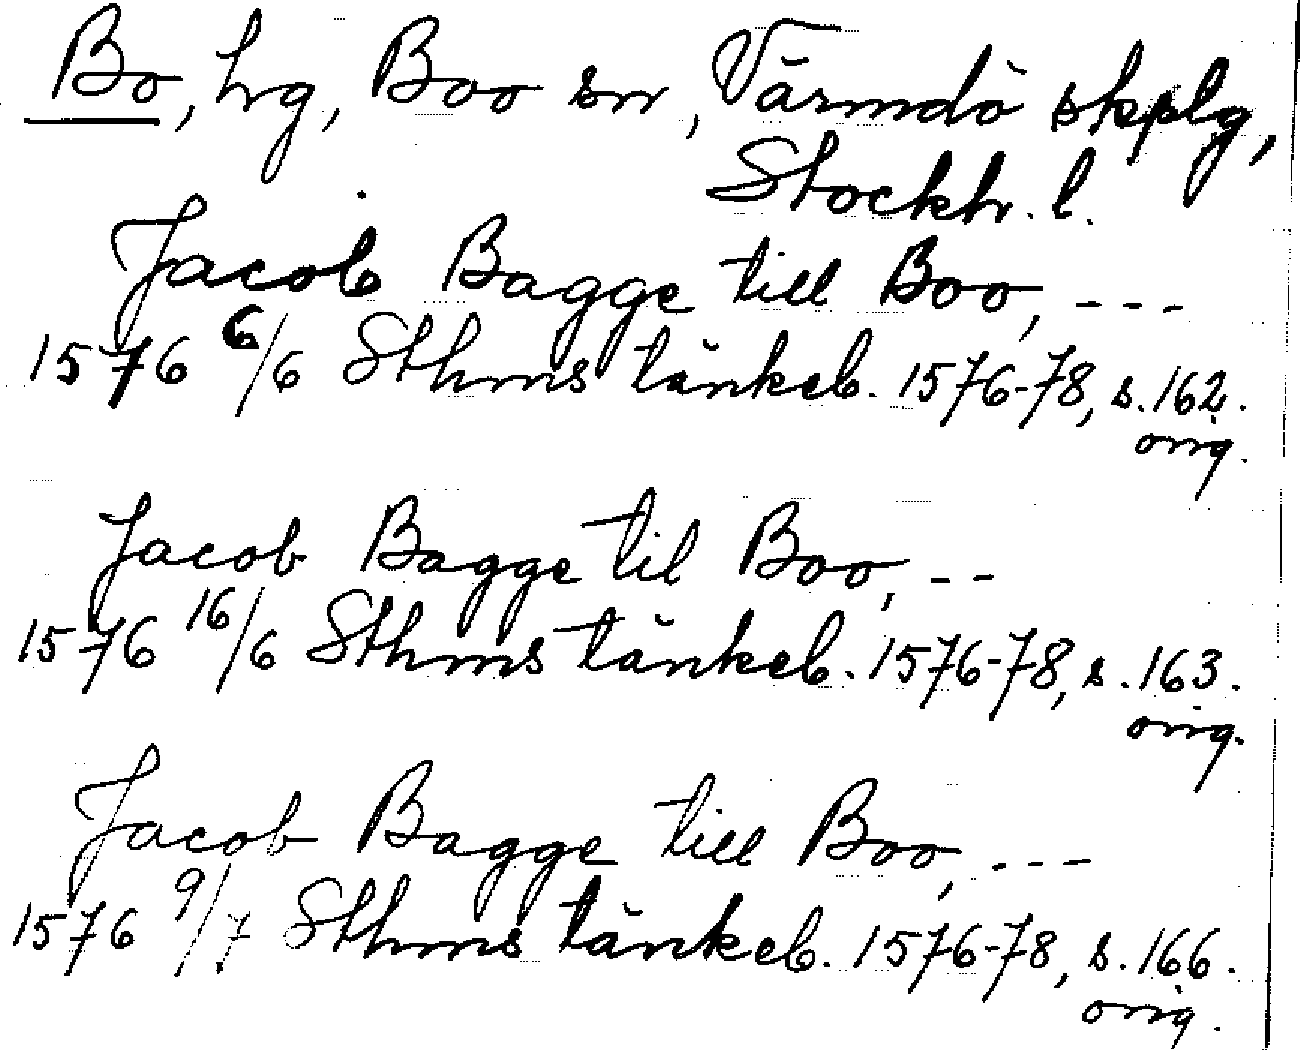 Bo, hg, Boo sn, Värmdö skplg,
Stockh. l.
Jacob Bagge till Boo, - - -
1576 6/6 Sthms tänkeb. 1576-78, s. 162.
orig.
Jacob Bagge til Boo, - -
1576 16/6 Sthms tänkeb. 1576-78, s. 163.
orig.
Jacob Bagge till Boo, - - -
1576 9/7 Sthms tänkeb. 1576-78, s. 166.
orig.